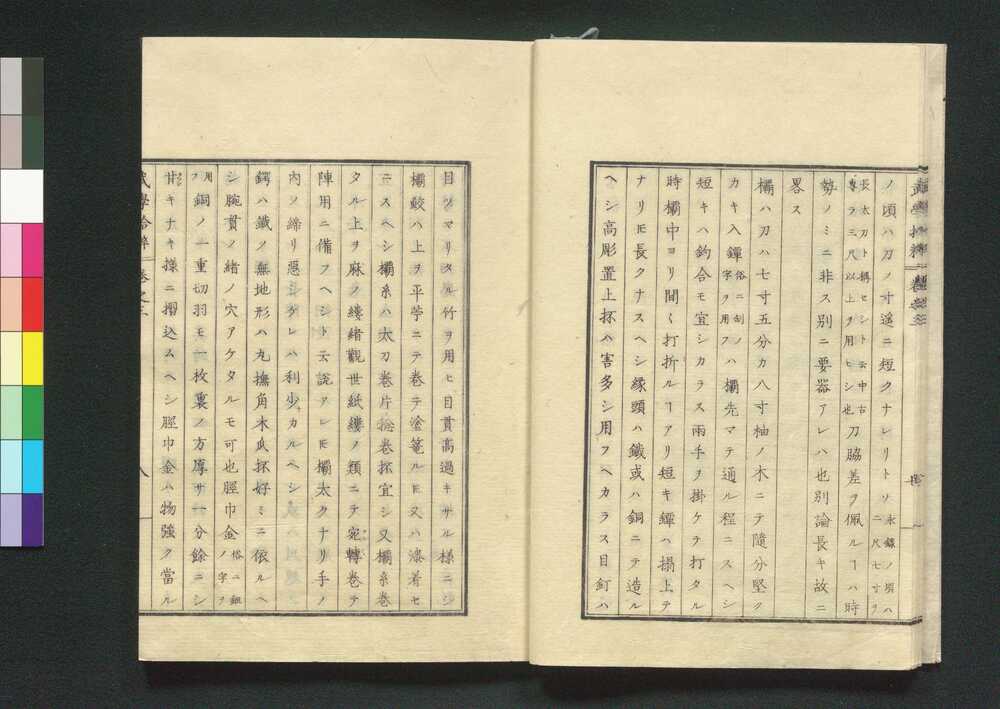 ノ頃ハ刀ノ寸遥ニ短クナレリトソ永録ノ頃ハ二尺七寸ヲ
長太刀ト稱セシト云中古專ラ三尺以上ヲ用ヒシ也刀脇差ヲ佩ルヿハ時
勢ノミニ非ス別ニ要器アレハ也別論長キ故ニ
畧ス
欛ハ刀ハ七寸五分カ八寸柚ノ木ニテ隨分堅ク
カキ入鐔俗ニ刮ノ字ヲ用フハ欛先マテ通ル程ニスヘシ
短キハ釣合モ宜シカラス兩手ヲ掛ケテ打タル
時欛中ヨリ間〻打折ルヿアリ短キ鐔ハ搨上テ
ナリ𪜈長クナスヘシ縁頭ハ鐵或ハ銅ニテ造ル
ヘシ高彫置上抔ハ害多シ用フヘカラス目釘ハ
目ツマリタル竹ヲ用ヒ目貫高過キサル樣ニシ
欛鮫ハ上ヲ平苧ニテ巻テ塗篭ル𪜈又ハ漆着セ
ニスヘシ欛糸ハ太刀卷片捻卷抔宜シ又欛糸卷
タル上ヲ麻ノ縷緒觀世紙縷ノ類ニテ宛轉卷テ
陣用ニ備フヘシト云説アレ𪜈欛太クナリ手ノ
内ノ締リ惡斗ケレハ利少カルヘシ
鍔ハ鐵ノ無地形ハ丸撫角木瓜抔好ミニ依ルヘ
シ腕貫ノ緒ノ穴アケタルモ可也脛巾金俗ニ鎺ノ字ヲ
用フ銅ノ一重切羽モ一枚裏ノ方厚サ一分餘ニシ
甘キナキ樣ニ摺込ムヘシ脛巾金ハ物強ク當ル
武學拾粹 卷之三 八